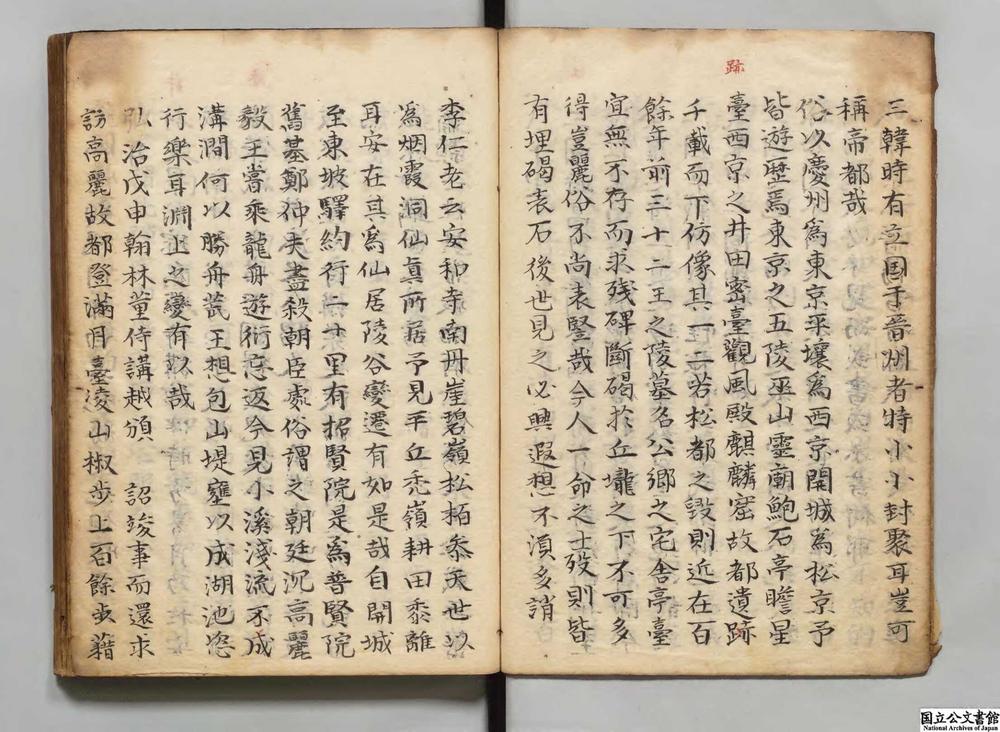 跡
三韓時有立国于晋州者特小小封聚耳豈可
稱帝都哉
俗以慶州為東京平壤為西京開城為松京予
皆遊歴焉東京之五陵巫山靈廟鮑石亭瞻星
臺西京之井田密臺觀風殿麒麟窟故都遺跡
千載而下仿像其一二若松都之毀則近在百
餘年前三十二王之陵墓名公郷之宅舎亭臺
宜無不存而求残碑斷碣於丘壠之下不可多
得豈麗俗不尚表竪哉今人一命之士殁則皆
有埋碣表石後世見之必興遐想不湏多誚
李仁老云安和寺南丹崖碧嶺松栢参天世以
為烟霞洞仙真所居予見平丘禿嶺耕田黍離
耳安在其為仙居陵谷變遷有如是哉自開城
至東坡驛約行二十里有招賢院是為普賢院
舊基鄭仲夫盡殺朝臣處俗謂之朝廷沉高麗
毅王嘗乘龍舟遊衍忘返今見小溪淺流不成
溝澗何以勝舟苐王想包山堤壅以成湖池恣
行樂耳淵上之變有以哉
弘治戊申翰林董侍講越頒 詔竣事而還求
訪高麗故都登滿月臺淩山椒步上百餘步藉
国立公文書館
National Archives of Japan